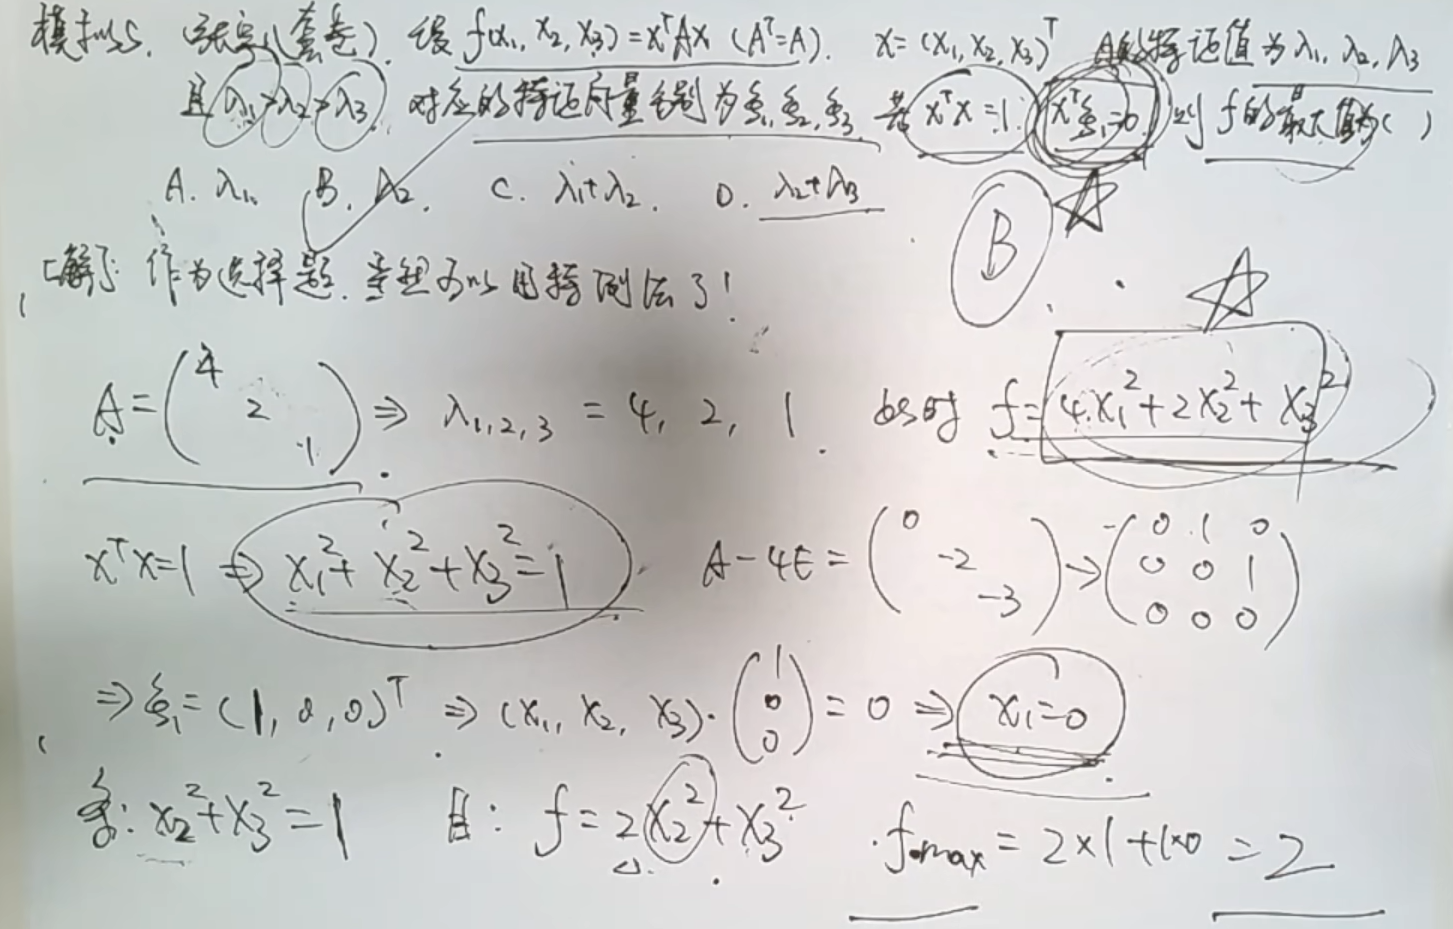 模拟5. (套卷). 设 f(x₁, x₂, x₃)=xᵀAx (Aᵀ=A). x=(x₁, x₂, x₃)ᵀ A的特征值为λ₁, λ₂, λ₃
且 λ₁>λ₂>λ₃. 对应的特征向量分别为ξ₁, ξ₂, ξ₃. 若 xᵀx=1. xᵀξ₁=0 则 f的最大值为( )
A. λ₁. B. λ₂. C. λ₁+λ₂. D. λ₂+λ₃
B
[解] 作为选择题. 当然可以用特例法了!
A=(4 2 1) ⇒ λ₁,₂,₃ = 4, 2, 1. 此时 f=4x₁²+2x₂²+x₃²
xᵀx=1 ⇒ x₁²+x₂²+x₃²=1 A-4E=(0 -2 -3)→(0 1 0 0 0 1 0 0 0)
⇒ξ₁=(1, 0, 0)ᵀ ⇒ (x₁, x₂, x₃)·(1 0 0)=0 ⇒ x₁=0
条: x₂²+x₃²=1 目: f=2x₂²+x₃² fmax=2×1+1×0=2